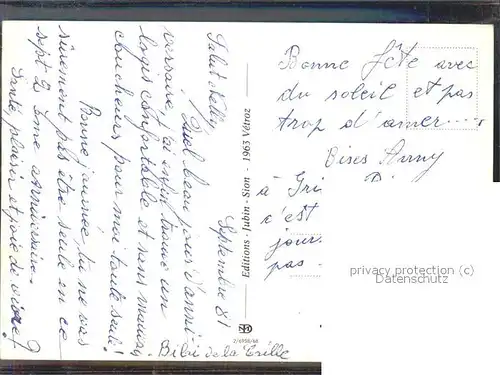 Septembre 81
Salut Nelly
Quel beau jour d'anni-
versaire, j'ai enfin trouvé un
logis confortable et sans
coucheurs, pour moi toute seule!
Bonne journée, tu ne vas
sûrement pas être seule en ce
sept 2 ème anniversaire.
Santé, plaisir et joie de vivre!
Bibi de la Grille
Editions - Jubin - Sion - 1963 Vétroz
Bonne fête avec
du soleil et pas
trop d'amer.....
Bises Anny
à Gri
c'est
jour
pas
privacy protection (c)
Datenschutz